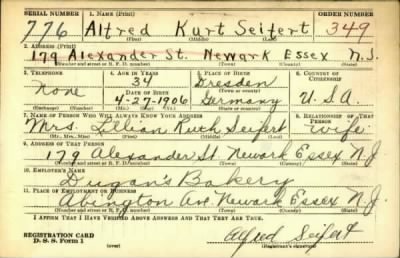 SERIAL NUMBER 1. NAME (Print) ORDER NUMBER
776 Alfred Kurt Seifert 349
(First) (Middle) (Last)
2. ADDRESS (Print)
179 Alexander St. Newark Essex N.J.
(Number and street or R. F. D. number) (Town) (County) (State)
3. TELEPHONE 4. AGE IN YEARS 5. PLACE OF BIRTH 6. COUNTRY OF CITIZENSHIP
34 Dresden
None DATE OF BIRTH (Town or county)
4-27-1906 Germany U.S.A.
(Exchange) (Number) (Mo.) (Day) (Yr.) (State or country)
7. NAME OF PERSON WHO WILL ALWAYS KNOW YOUR ADDRESS 8. RELATIONSHIP OF THAT PERSON
Mrs. Lillian Ruth Seifert wife
(Mr., Mrs., Miss) (First) (Middle) (Last)
9. ADDRESS OF THAT PERSON
179 Alexander St. Newark Essex N.J.
(Number and street or R. F. D. number) (Town) (County) (State)
10. EMPLOYER'S NAME
Dugan's Bakery
11. PLACE OF EMPLOYMENT OR BUSINESS
Abington Ave. Newark Essex N.J.
(Number and street or R. F. D. number) (Town) (County) (State)
I AFFIRM THAT I HAVE VERIFIED ABOVE ANSWERS AND THAT THEY ARE TRUE.
REGISTRATION CARD
D. S. S. Form 1 (over) Alfred Seifert
(Registrant's signature)